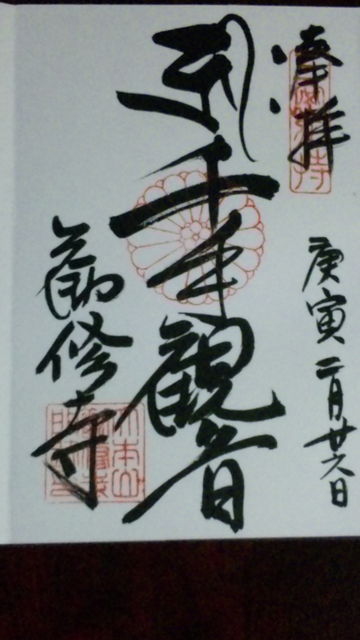 奉拝
庚寅二月廿六日
千手観音
勧修寺